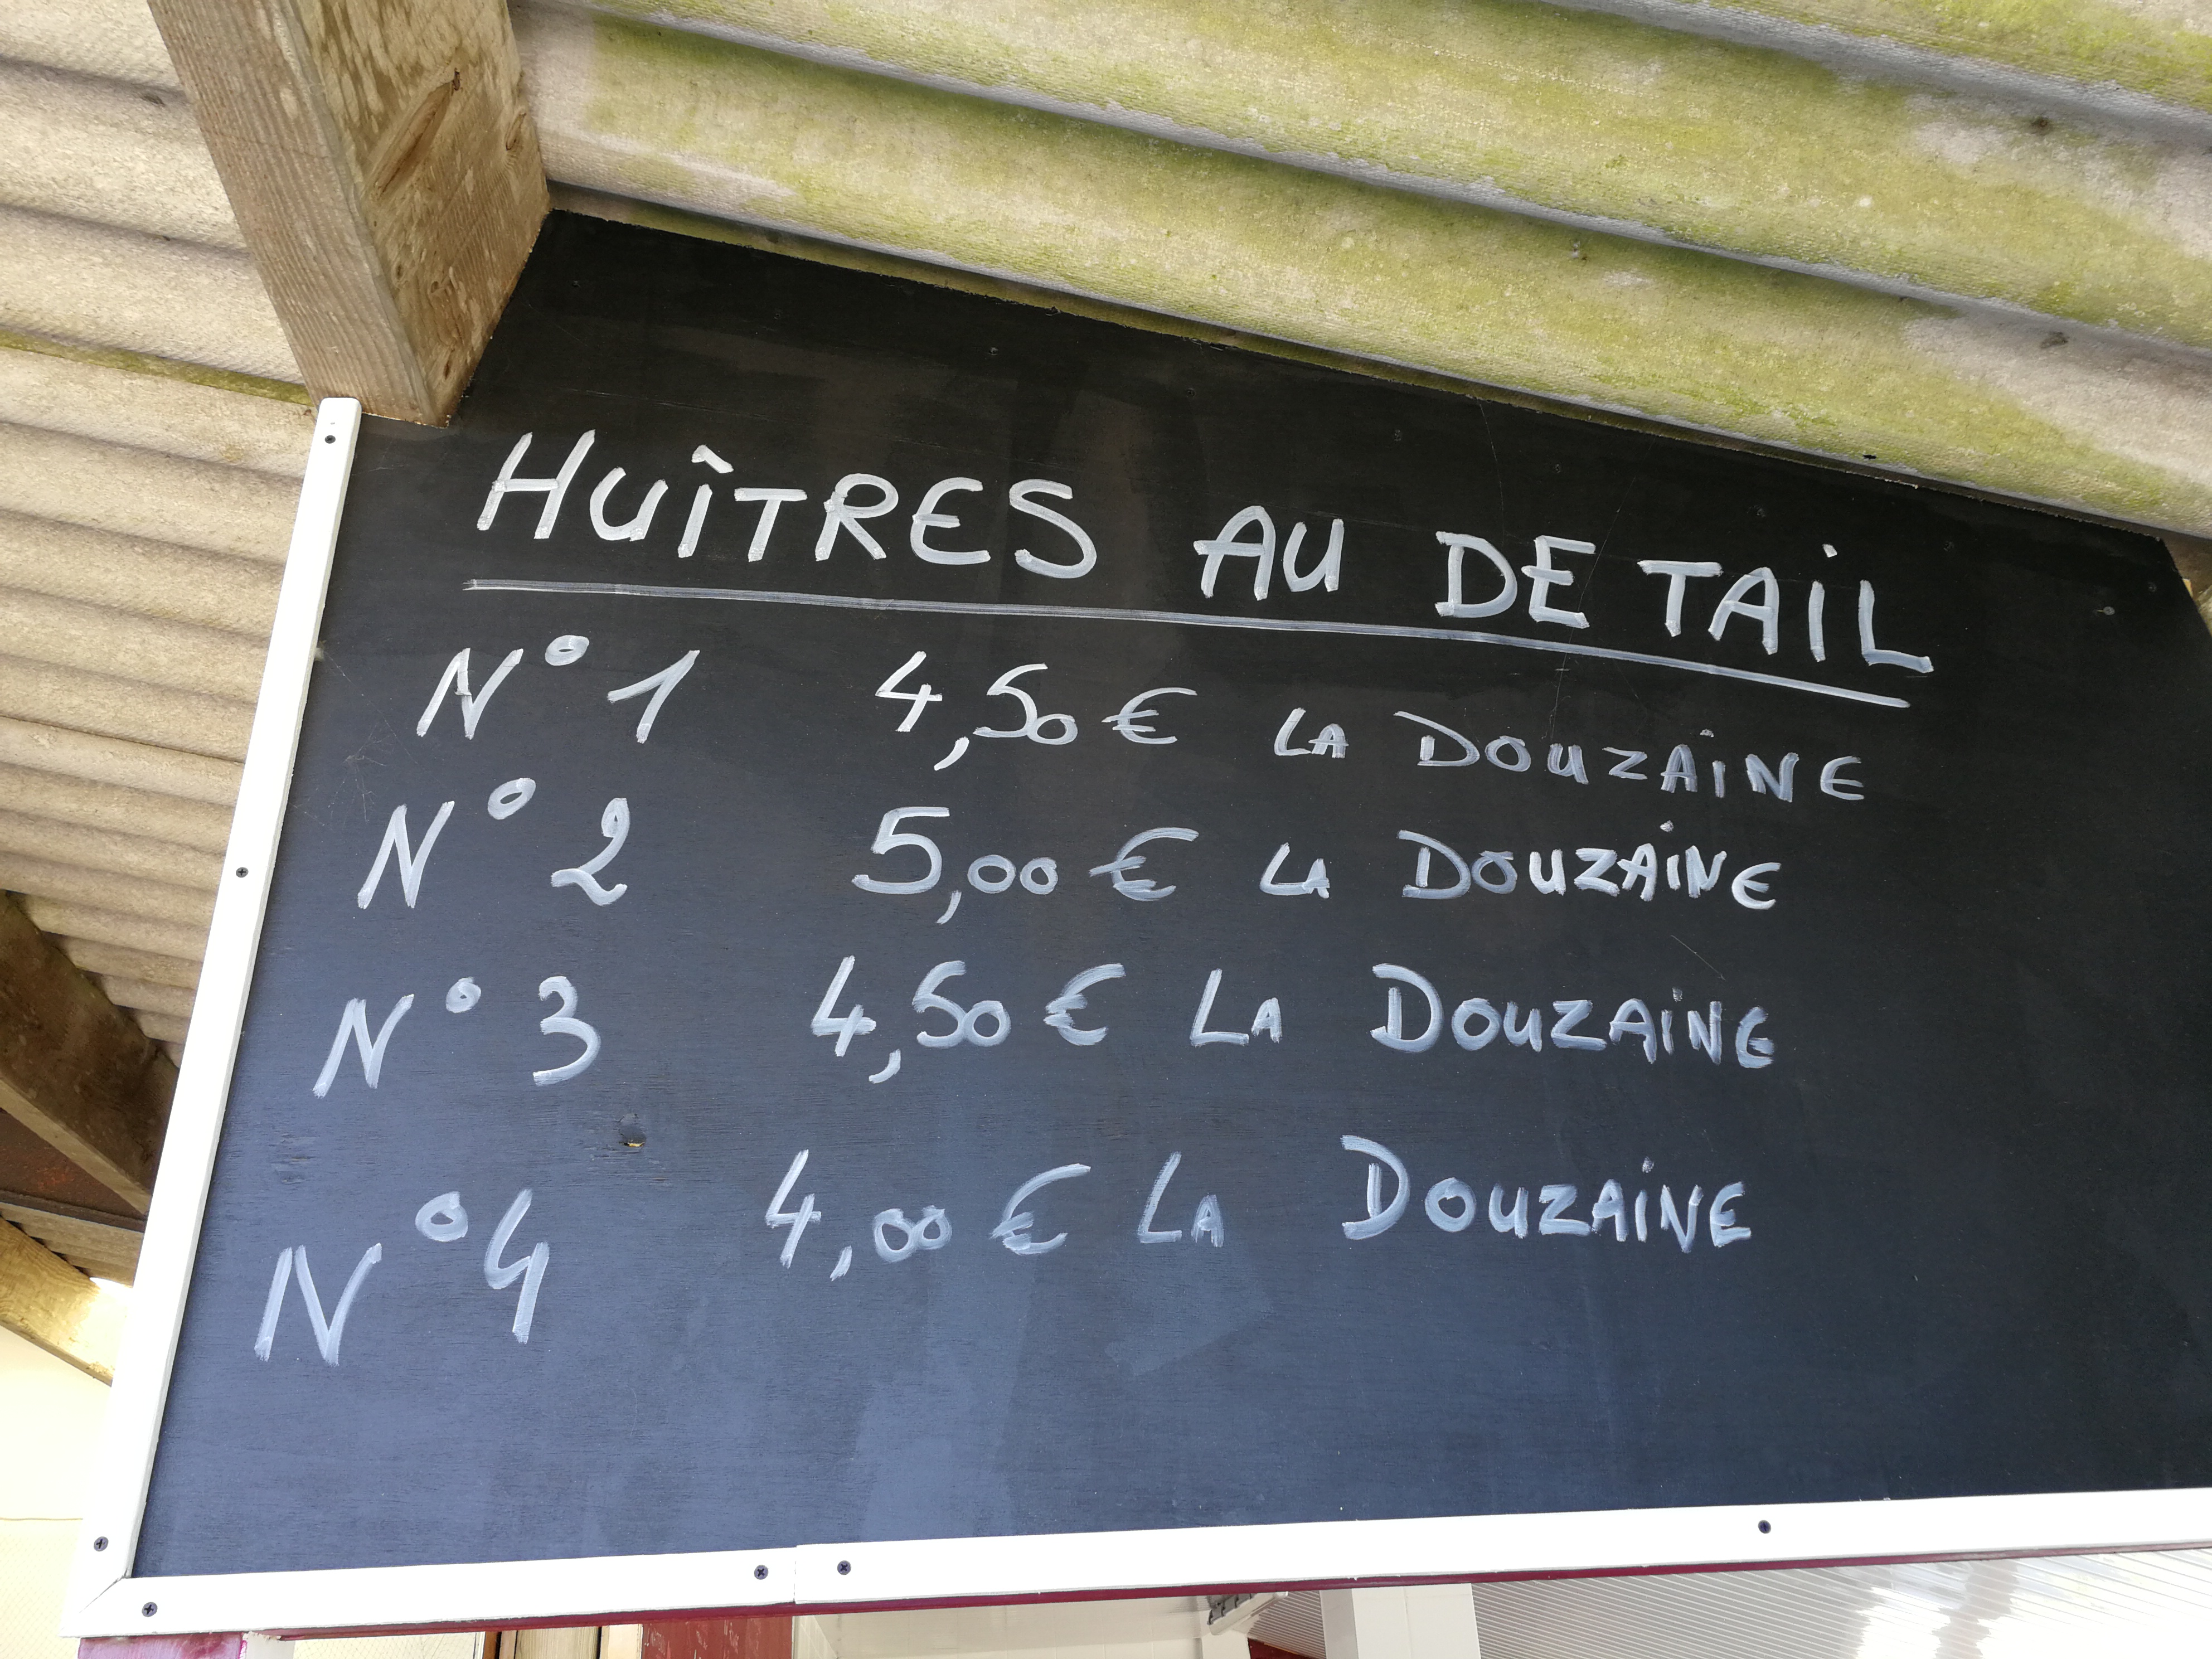 HUÎTRES AU DETAIL
N° 1 4,50 € LA DOUZAINE
N° 2 5,00 € LA DOUZAINE
N° 3 4,50 € LA DOUZAINE
N° 4 4,00 € LA DOUZAINE